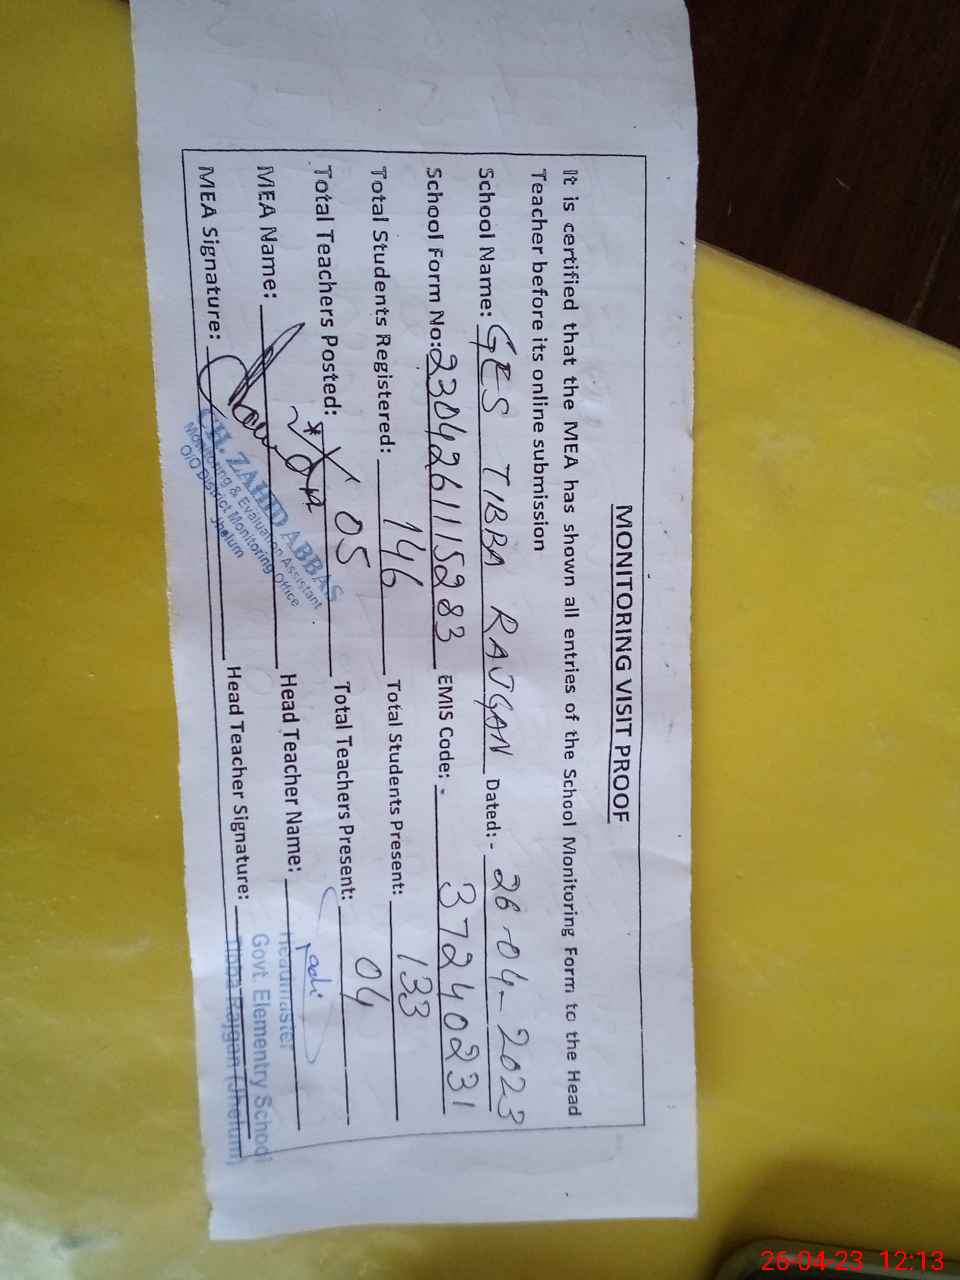 MONITORING VISIT PROOF
It is certified that the MEA has shown all entries of the School Monitoring Form to the Head
Teacher before its online submission
School Name: GES TIBBA RAJGAN Dated: - 26-04-2023
School Form No: 2304261115283 EMIS Code: - 37240231
Total Students Registered: 146 Total Students Present: 133
Total Teachers Posted: 05 Total Teachers Present: 04
MEA Name: Head Teacher Name:
MEA Signature: Head Teacher Signature:
CH. ZAHID ABBAS
Monitoring & Evaluation Assistant
O/O District Monitoring Office
Jhelum
Headmaster
Govt. Elementry School
Tibba Rajgan (Jhelum)
26-04-23 12:13